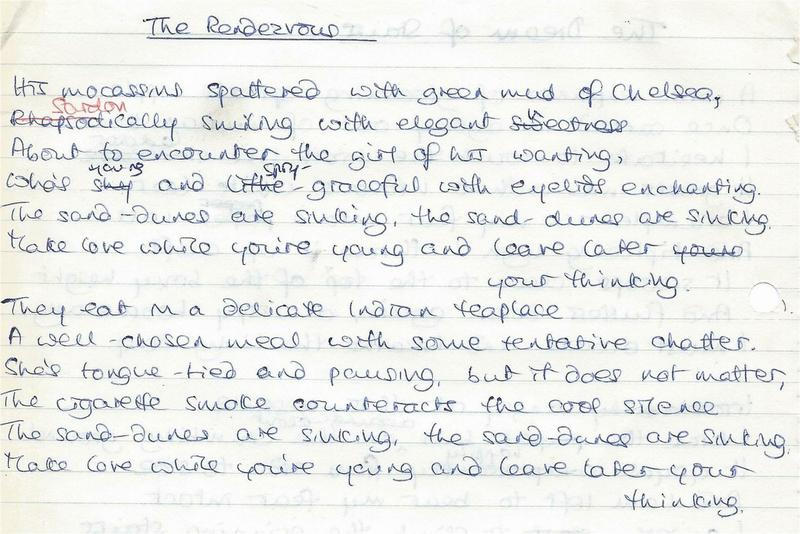 The Rendezvous
His mocassins spattered with green mud of Chelsea,
sardon
Rhapsodically smiling with elegant sweetness
About to encounter the girl of his wanting,
young spry-
Who's shy and lithe-graceful with eyelids enchanting.
The sand-dunes are sinking, the sand-dunes are sinking.
Make love while you're young and leave later yours
your thinking.
They eat in a delicate Indian teaplace
A well-chosen meal with some tentative chatter.
She's tongue-tied and pausing, but it does not matter,
The cigarette smoke counteracts the cool silence
The sand-dunes are sinking, the sand-dunes are sinking.
Make love while you're young and leave later your
thinking.